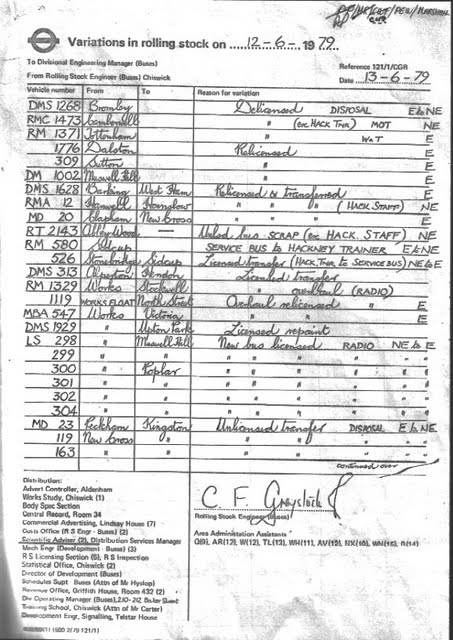 Variations in rolling stock on 12-6-1979.
To Divisional Engineering Manager (Buses)
Reference 121/1/CGR
From Rolling Stock Engineer (Buses) Chiswick
Date 13-6-79
Vehicle number From To Reason for variation
DMS 1268 Bromley Delicensed DISPOSAL E to NE
RMC 1473 Camberwell " (ex HACK TNR) MOT NE
RM 1371 Tottenham " E
1776 Dalston Relicensed E
309 Sutton " E
DM 1002 Muswell Hill " E
DMS 1628 Barking West Ham Relicensed & transferred E
RMA 12 Hanwell Hounslow " " " (HACK. STAFF) NE
MD 20 Clapham New Cross " " " E
RT 2143 Abbey Wood — Unlicd bus SCRAP (ex HACK. STAFF) NE
RM 580 Sidcup SERVICE BUS TO HACKNEY TRAINER E to NE
526 Stonebridge Sidcup Licensed transfer (HACK. TNR TO SERVICE BUS) NE to E
DMS 313 Alperton Hendon Licensed transfer E
RM 1329 Works Stockwell " overhaul (RADIO) E
1119 WORKS FLOAT North Street Overhaul relicensed " E
MBA 547 Works Victoria " " E
DMS 1929 " Upton Park Licensed repaint E
LS 298 " Muswell Hill New bus licensed RADIO NE to E
299 " " " " " " " "
300 " Poplar " " " " " "
301 " " " " " " " "
302 " " " " " " " "
304 " " " " " " " "
MD 23 Peckham Kingston Unlicensed transfer DISPOSAL E to NE
119 New Cross " " " " " "
163 " " " " " " "
continued over
Distribution:
Advert Controller, Aldenham
Works Study, Chiswick (1)
Body Spec Section
Central Record, Room 34
Commercial Advertising, Lindsay House (7)
Costs Office (R S Engr - Buses) (2)
Scientific Adviser (2), Distribution Services Manager
Mech Engr (Development - Buses) (3)
R S Licensing Section (5), R S Inspection
Statistical Office, Chiswick (2)
Director of Development (Buses)
Schedules Supt - Buses (Attn of Mr Hyslop)
Revenue Office, Griffith House, Room 432 (2)
Die Operating Manager (Buses), 210-212 Baker Street
Training School, Chiswick (Attn of Mr Carter)
Development Engr, Signalling, Telstar House
C F Graystock
Rolling Stock Engineer (Buses)
Area Administration Assistants
Q(9), AR(12), W(12), TL(13), WH(11), AV(12), NX(10), WN(15), B(14)
(500 2/79 121/1)